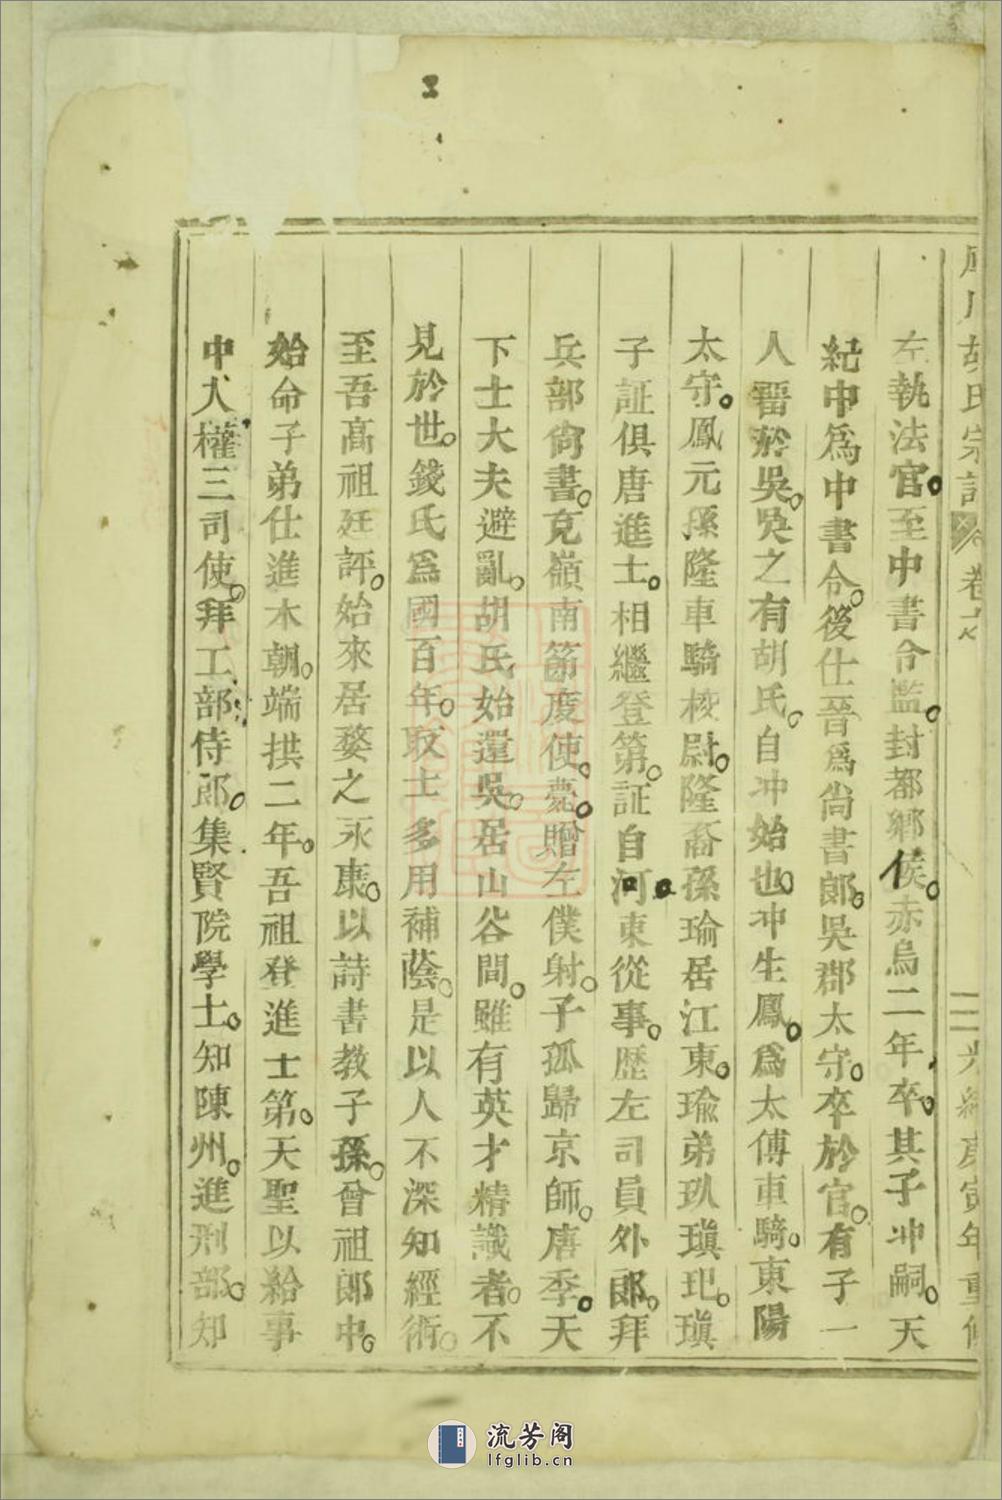 胡氏宗譜 卷 二 光緒庚寅年重修
左執法官至中書令監封都鄉侯赤烏二年卒其子冲嗣天
紀中爲中書令後仕晉爲尚書郎吳郡太守卒於官有子一
人留於吳吳之有胡氏自冲始也冲生鳳爲太傅車騎東陽
太守鳳元孫隆車騎校尉隆裔孫瑜居江東瑜弟玖瑱玘瑱
子証俱唐進士相繼登第証自河東從事歷左司員外郎拜
兵部尙書克嶺南節度使薨贈左僕射子孤歸京師唐季天
下士大夫避亂胡氏始還吳居山谷間雖有英才精識者不
見於世錢氏爲國百年取士多用補蔭是以人不深知經術
至吾高祖廷評始來居婺之永康以詩書教子孫曾祖郎中
始命子弟仕進本朝端拱二年吾祖登進士第天聖以給事
中入權三司使拜工部侍郎集賢院學士知陳州進刑部知
流芳阁
lfglib.cn